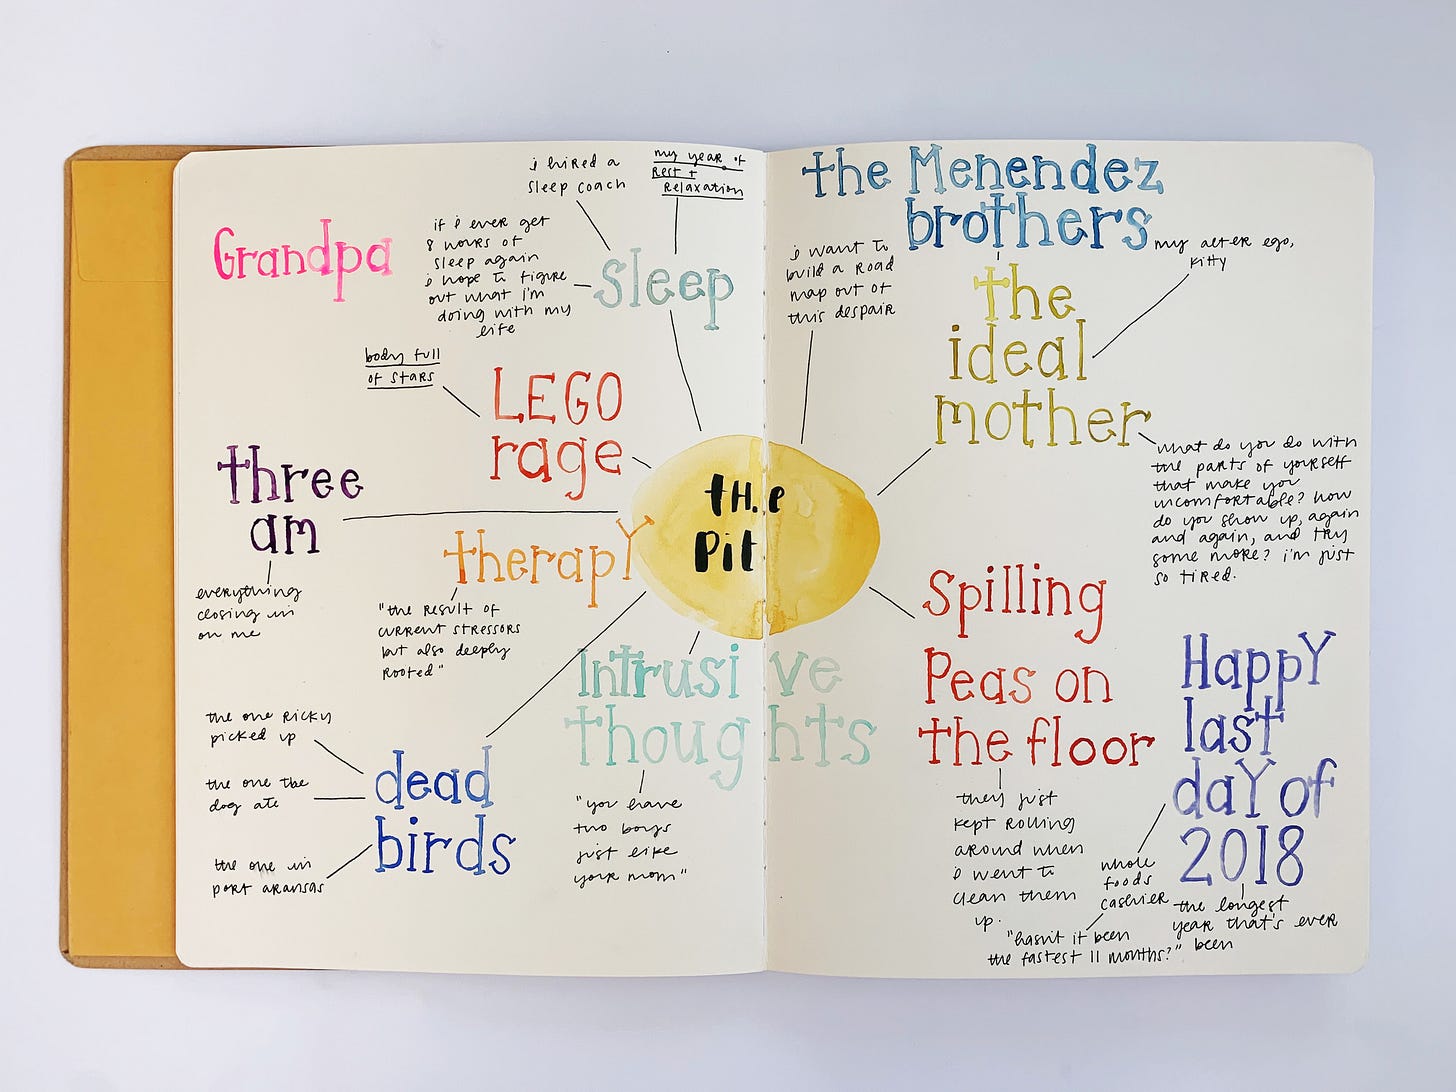 i hired a
sleep coach
my year of
rest +
relaxation
Grandpa
if i ever get
8 hours of
sleep again
i hope to figure
out what i'm
doing with my
life
sleep
body full
of stars
LEGO
rage
three
am
everything
closing in
on me
therapy
"the result of
current stressors
but also deeply
rooted"
the
Pit
Intrusive
thoughts
"you have
two boys
just like
your mom"
the one Ricky
picked up
the one the
dog ate
the one in
port aransas
dead
birds
the Menendez
brothers
i want to
build a road
map out of
this despair
my alter ego,
kitty
the
ideal
mother
what do you do with
the parts of yourself
that make you
uncomfortable? how
do you show up, again
and again, and try
some more? i'm just
so tired.
Spilling
Peas on
the floor
they just
kept rolling
around when
i went to
clean them
up.
Happy
last
day of
2018
whole
foods
cashier
"hasn't it been
the fastest 11 months?"
the longest
year that's ever
been